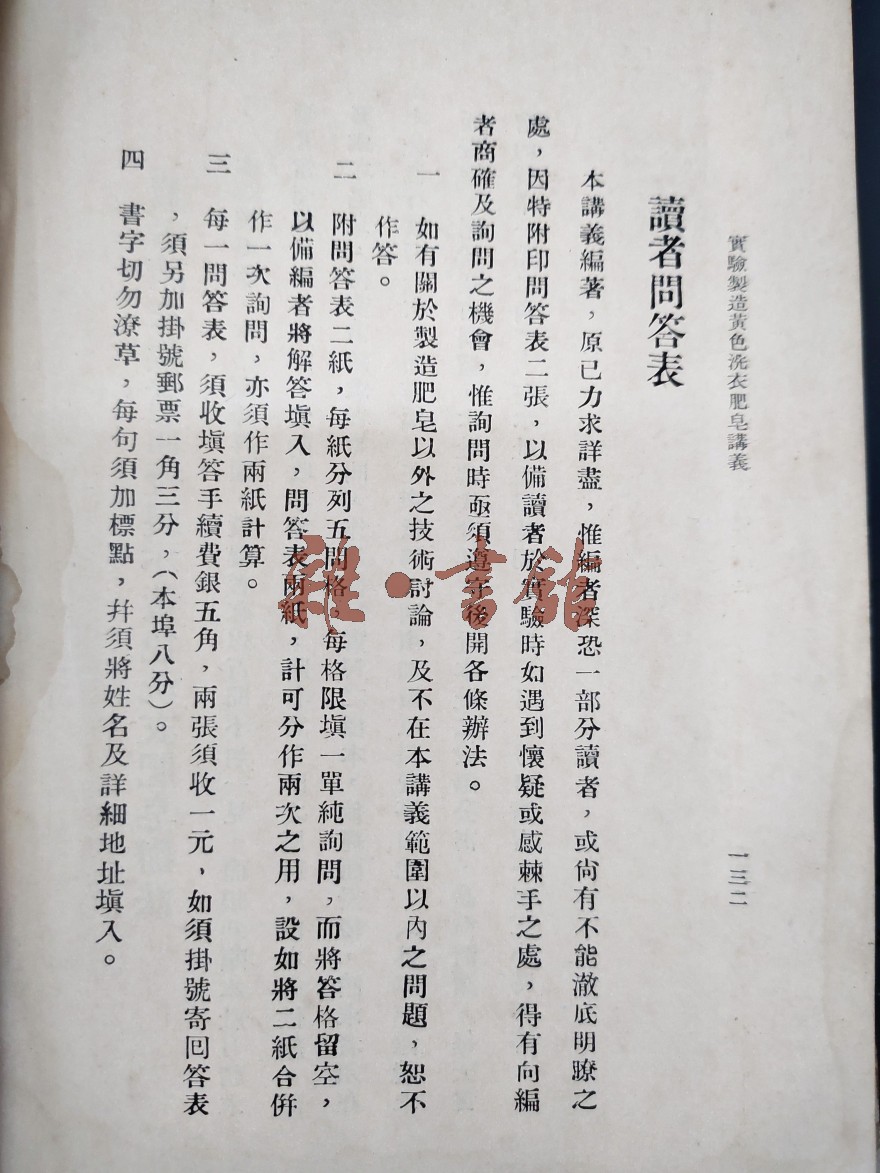 實驗製造黃色洗衣肥皂講義
一三二
讀者問答表
本講義編著，原已力求詳盡，惟編者深恐一部分讀者，或尙有不能澈底明瞭之
處，因特附印問答表二張，以備讀者於實驗時如遇到懷疑或感棘手之處，得有向編
者商確及詢問之機會，惟詢問時亟須遵守後開各條辦法。
一　如有關於製造肥皂以外之技術討論，及不在本講義範圍以內之問題，恕不
作答。
二　附問答表二紙，每紙分列五問格，每格限塡一單純詢問，而將答格留空，
以備編者將解答塡入，問答表兩紙，計可分作兩次之用，設如將二紙合倂
作一次詢問，亦須作兩紙計算。
三　每一問答表，須收塡答手續費銀五角，兩張須收一元，如須掛號寄回答表
，須另加掛號郵票一角三分，（本埠八分）。
四　書字切勿潦草，每句須加標點，幷須將姓名及詳細地址塡入。
雜·書館